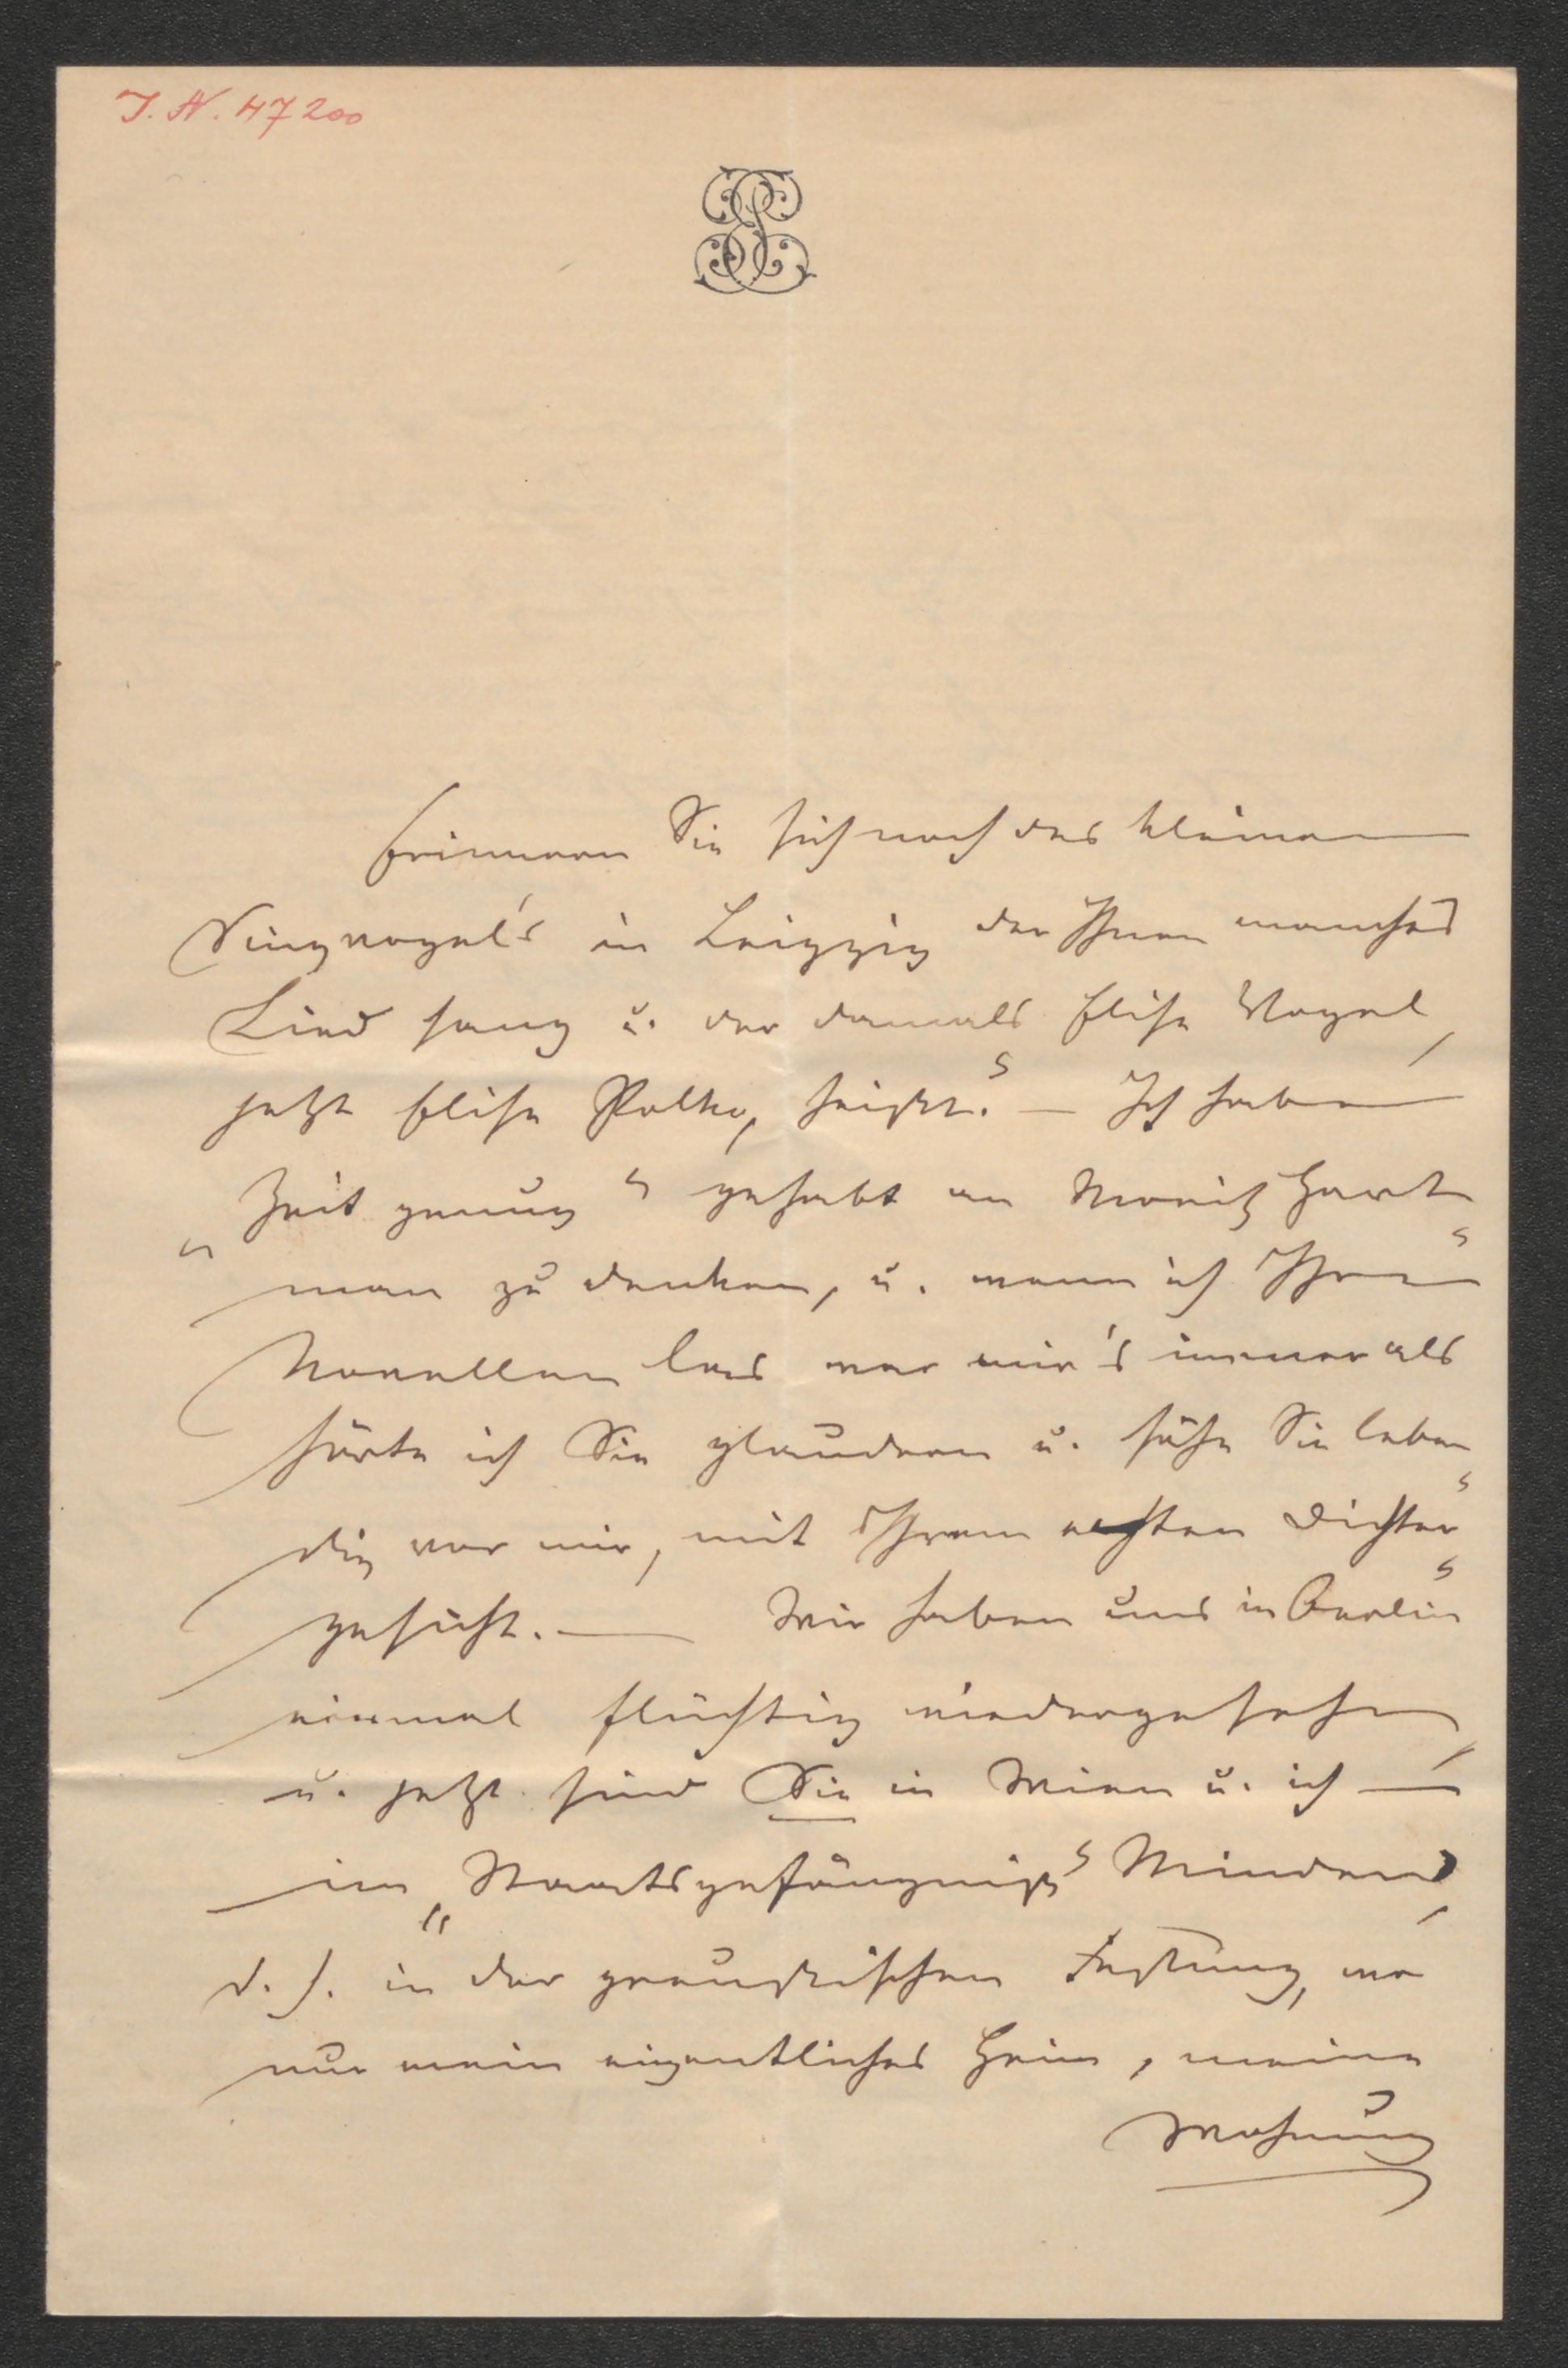 J. N. 47200
Erinnern Sie sich noch des kleinen
Singvogel's in Leipzig der Ihnen manches
Lied sang u. der damals Elise Vogel,
jetzt Elise Polko, heißt? — Ich habe
„Zeit genug“ gehabt an Moritz Hart-
man zu denken, u. wenn ich Ihre
Novellen las war mir's immer als
hörte ich Sie plaudern u. sähe Sie leben-
dig vor mir, mit Ihrem echten Dichter-
gesicht. — Wir haben uns in Berlin
einmal flüchtig wiedergesehen,
u. jetzt sind Sie in Wien u. ich —
im „Staatsgefängniß“ Minden,
d. h. in der preußischen Festung, wo
nur mein eigentliches Heim, meine
Wohnung